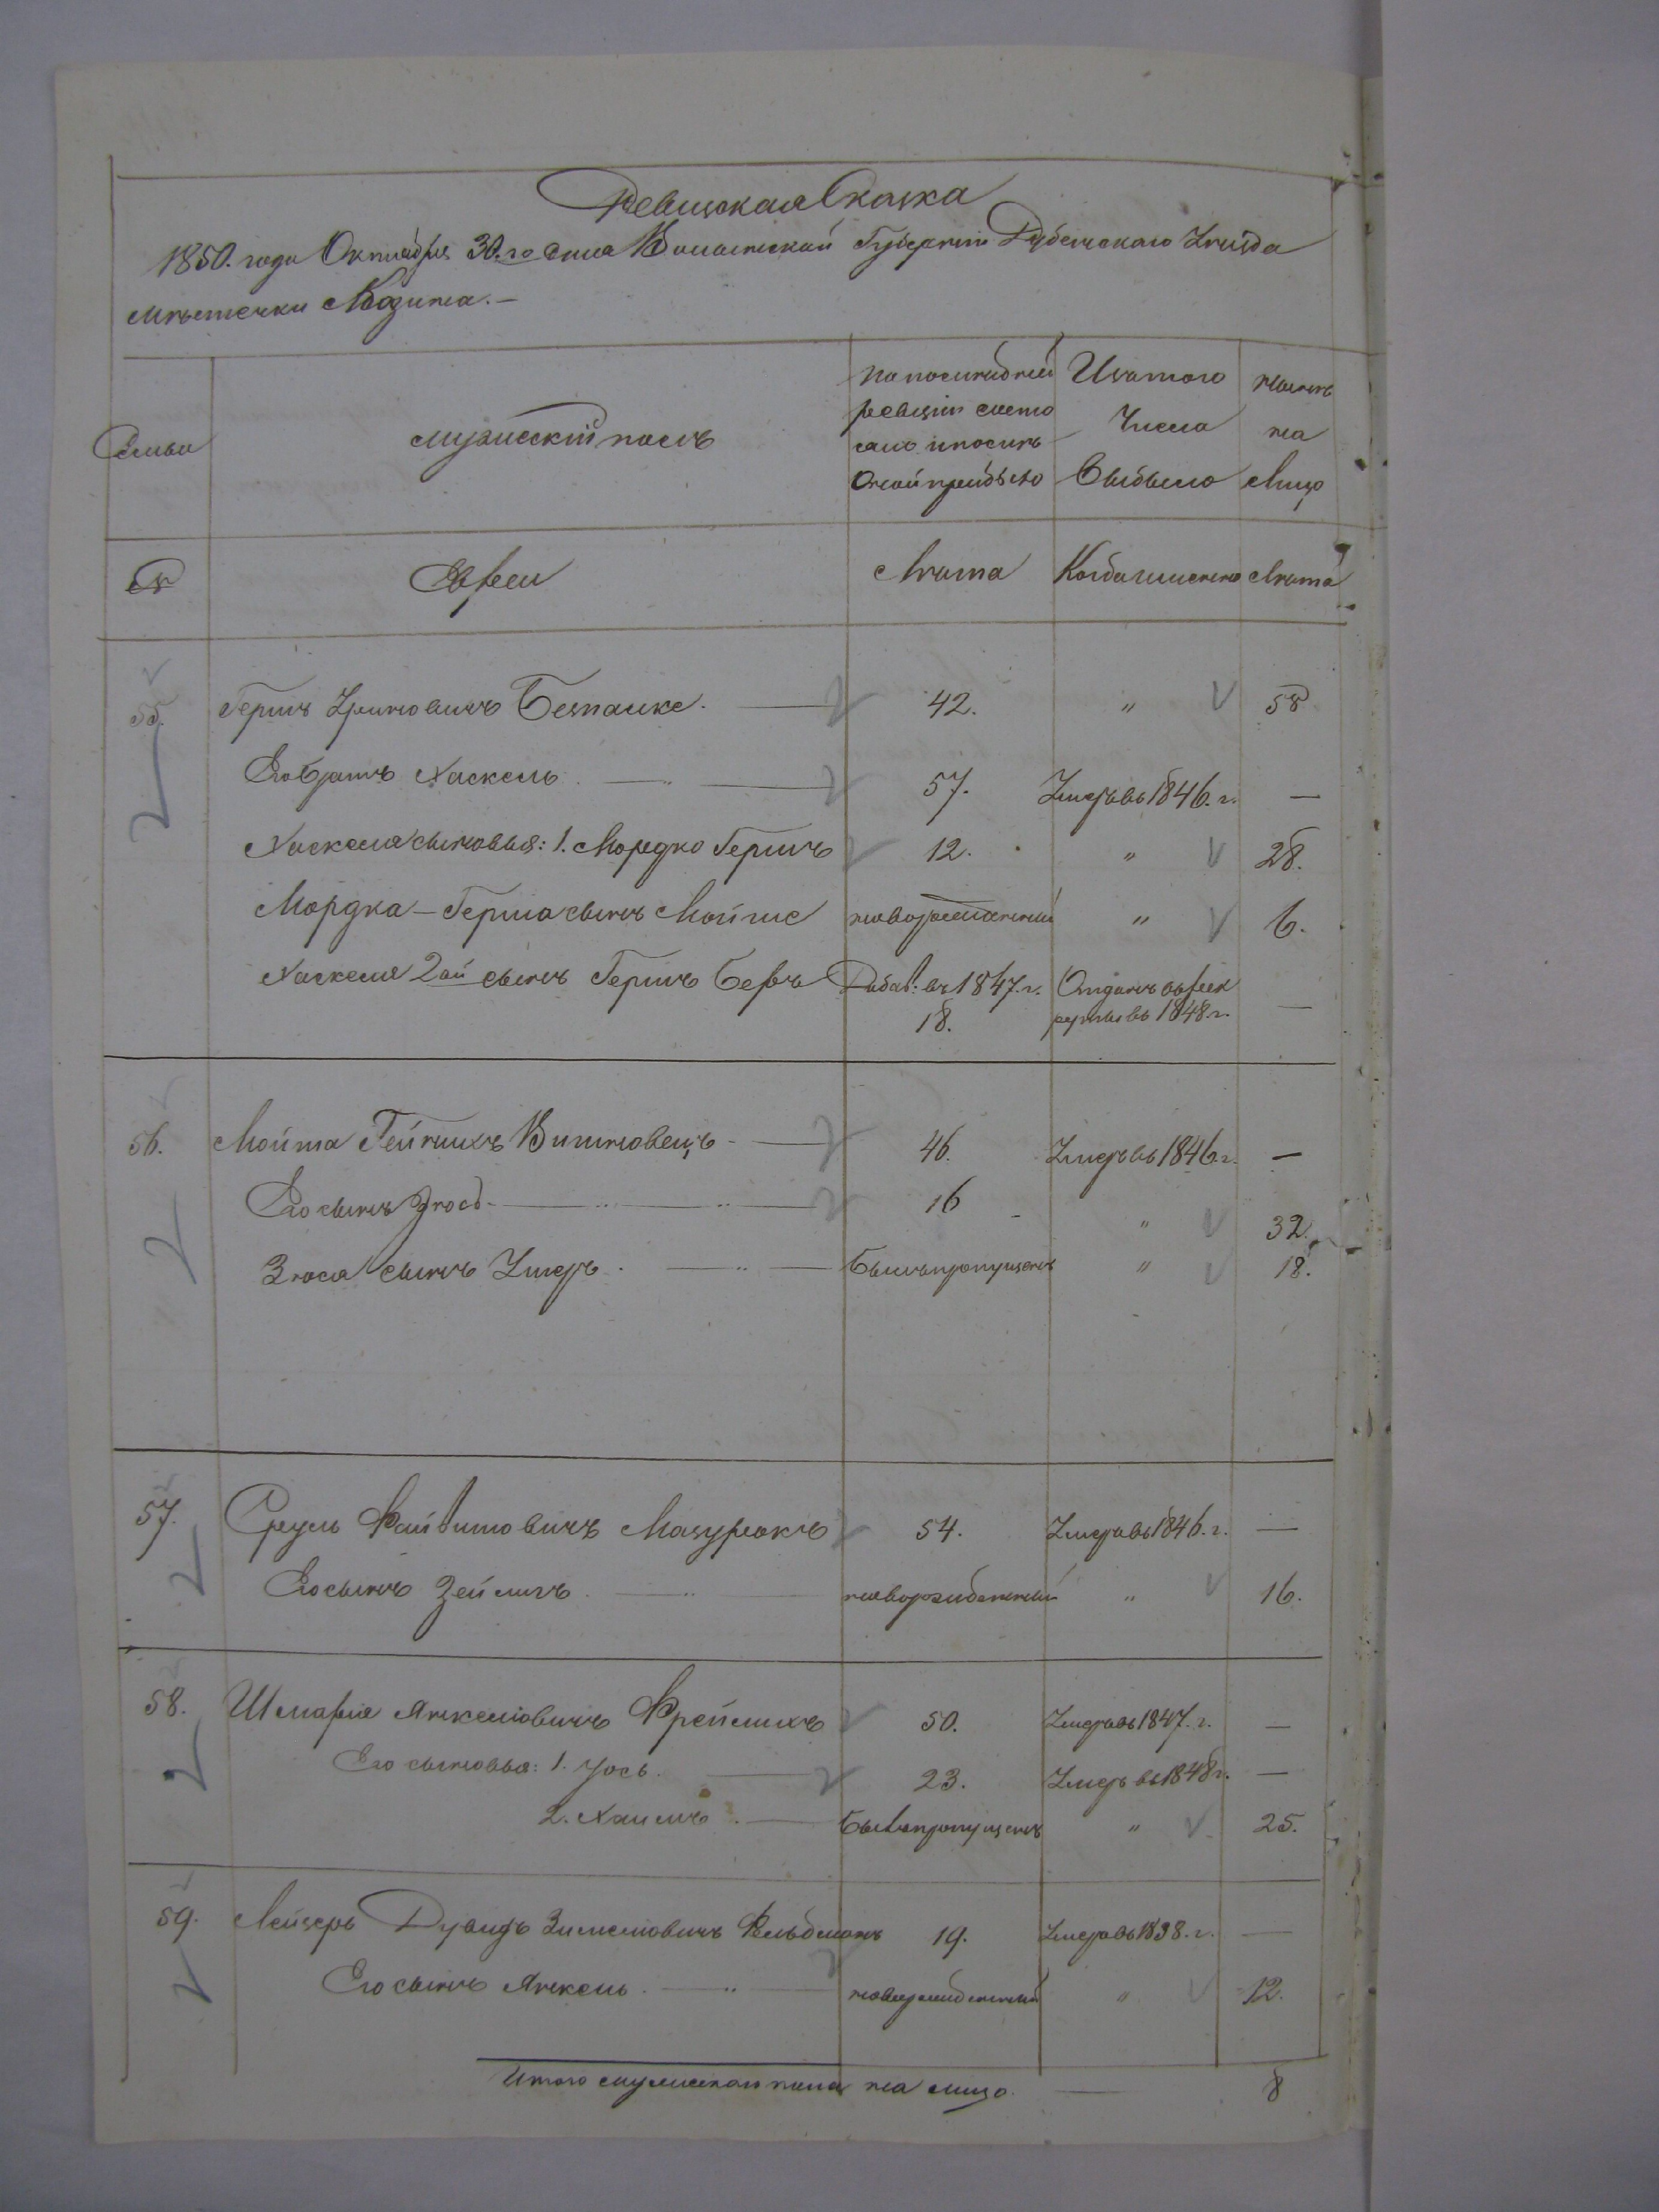 Ревизская Сказка
1850. года Октября 30.го дня Волынской Губернии Дубенскаго Уезда
местечки Козина. —
Семьи
мужеский полъ
По последней
ревизии состо
яло и после
оной прибыло
Изъ того
Числа
Выбыло
ныне
на
Лицо
№
Евреи
Лета
Когда именно
Лета
55. Гершъ Ушеровичъ Беспалке. — 42. " 58
Его братъ Хаскель. — " — 57. Умеръ въ 1846. г. —
Хаскеля сыновья: 1. Мордко Гершъ 12. " 28.
Мордка — Герша сынъ Мойше новорожденный " 6.
Хаскеля 2ой сынъ Гершъ Беръ Добав: въ 1847. г. 18. Отданъ въ рек
руты въ 1848. г. —
56. Гейнихъ Вишневецъ — 46. Умеръ въ 1846. г. —
Его сынъ — " — " — 16 " 32.
сынъ Умеръ. — " — Былъ пропущенъ " 18.
57. Сруль Файвишовичъ Мазурокъ 54. Умеръ въ 1846. г. —
Его сынъ Зейликъ. — " — новорожденный " 16.
58. Шмария Янкелiовичъ Фрейлихъ 50. Умеръ въ 1847. г. —
Его сыновья: 1. Іось. — 23. Умеръ въ 1848 г. —
2. Хаимъ. — Былъ пропущенъ " 25.
59. Лейзеръ Дувидъ Зимелiовичъ Фельдманъ 19. Умеръ въ 1838. г. —
Его сынъ Янкель. — " — новорожденный " 12.
Итого мужескаго пола на лицо. — 8